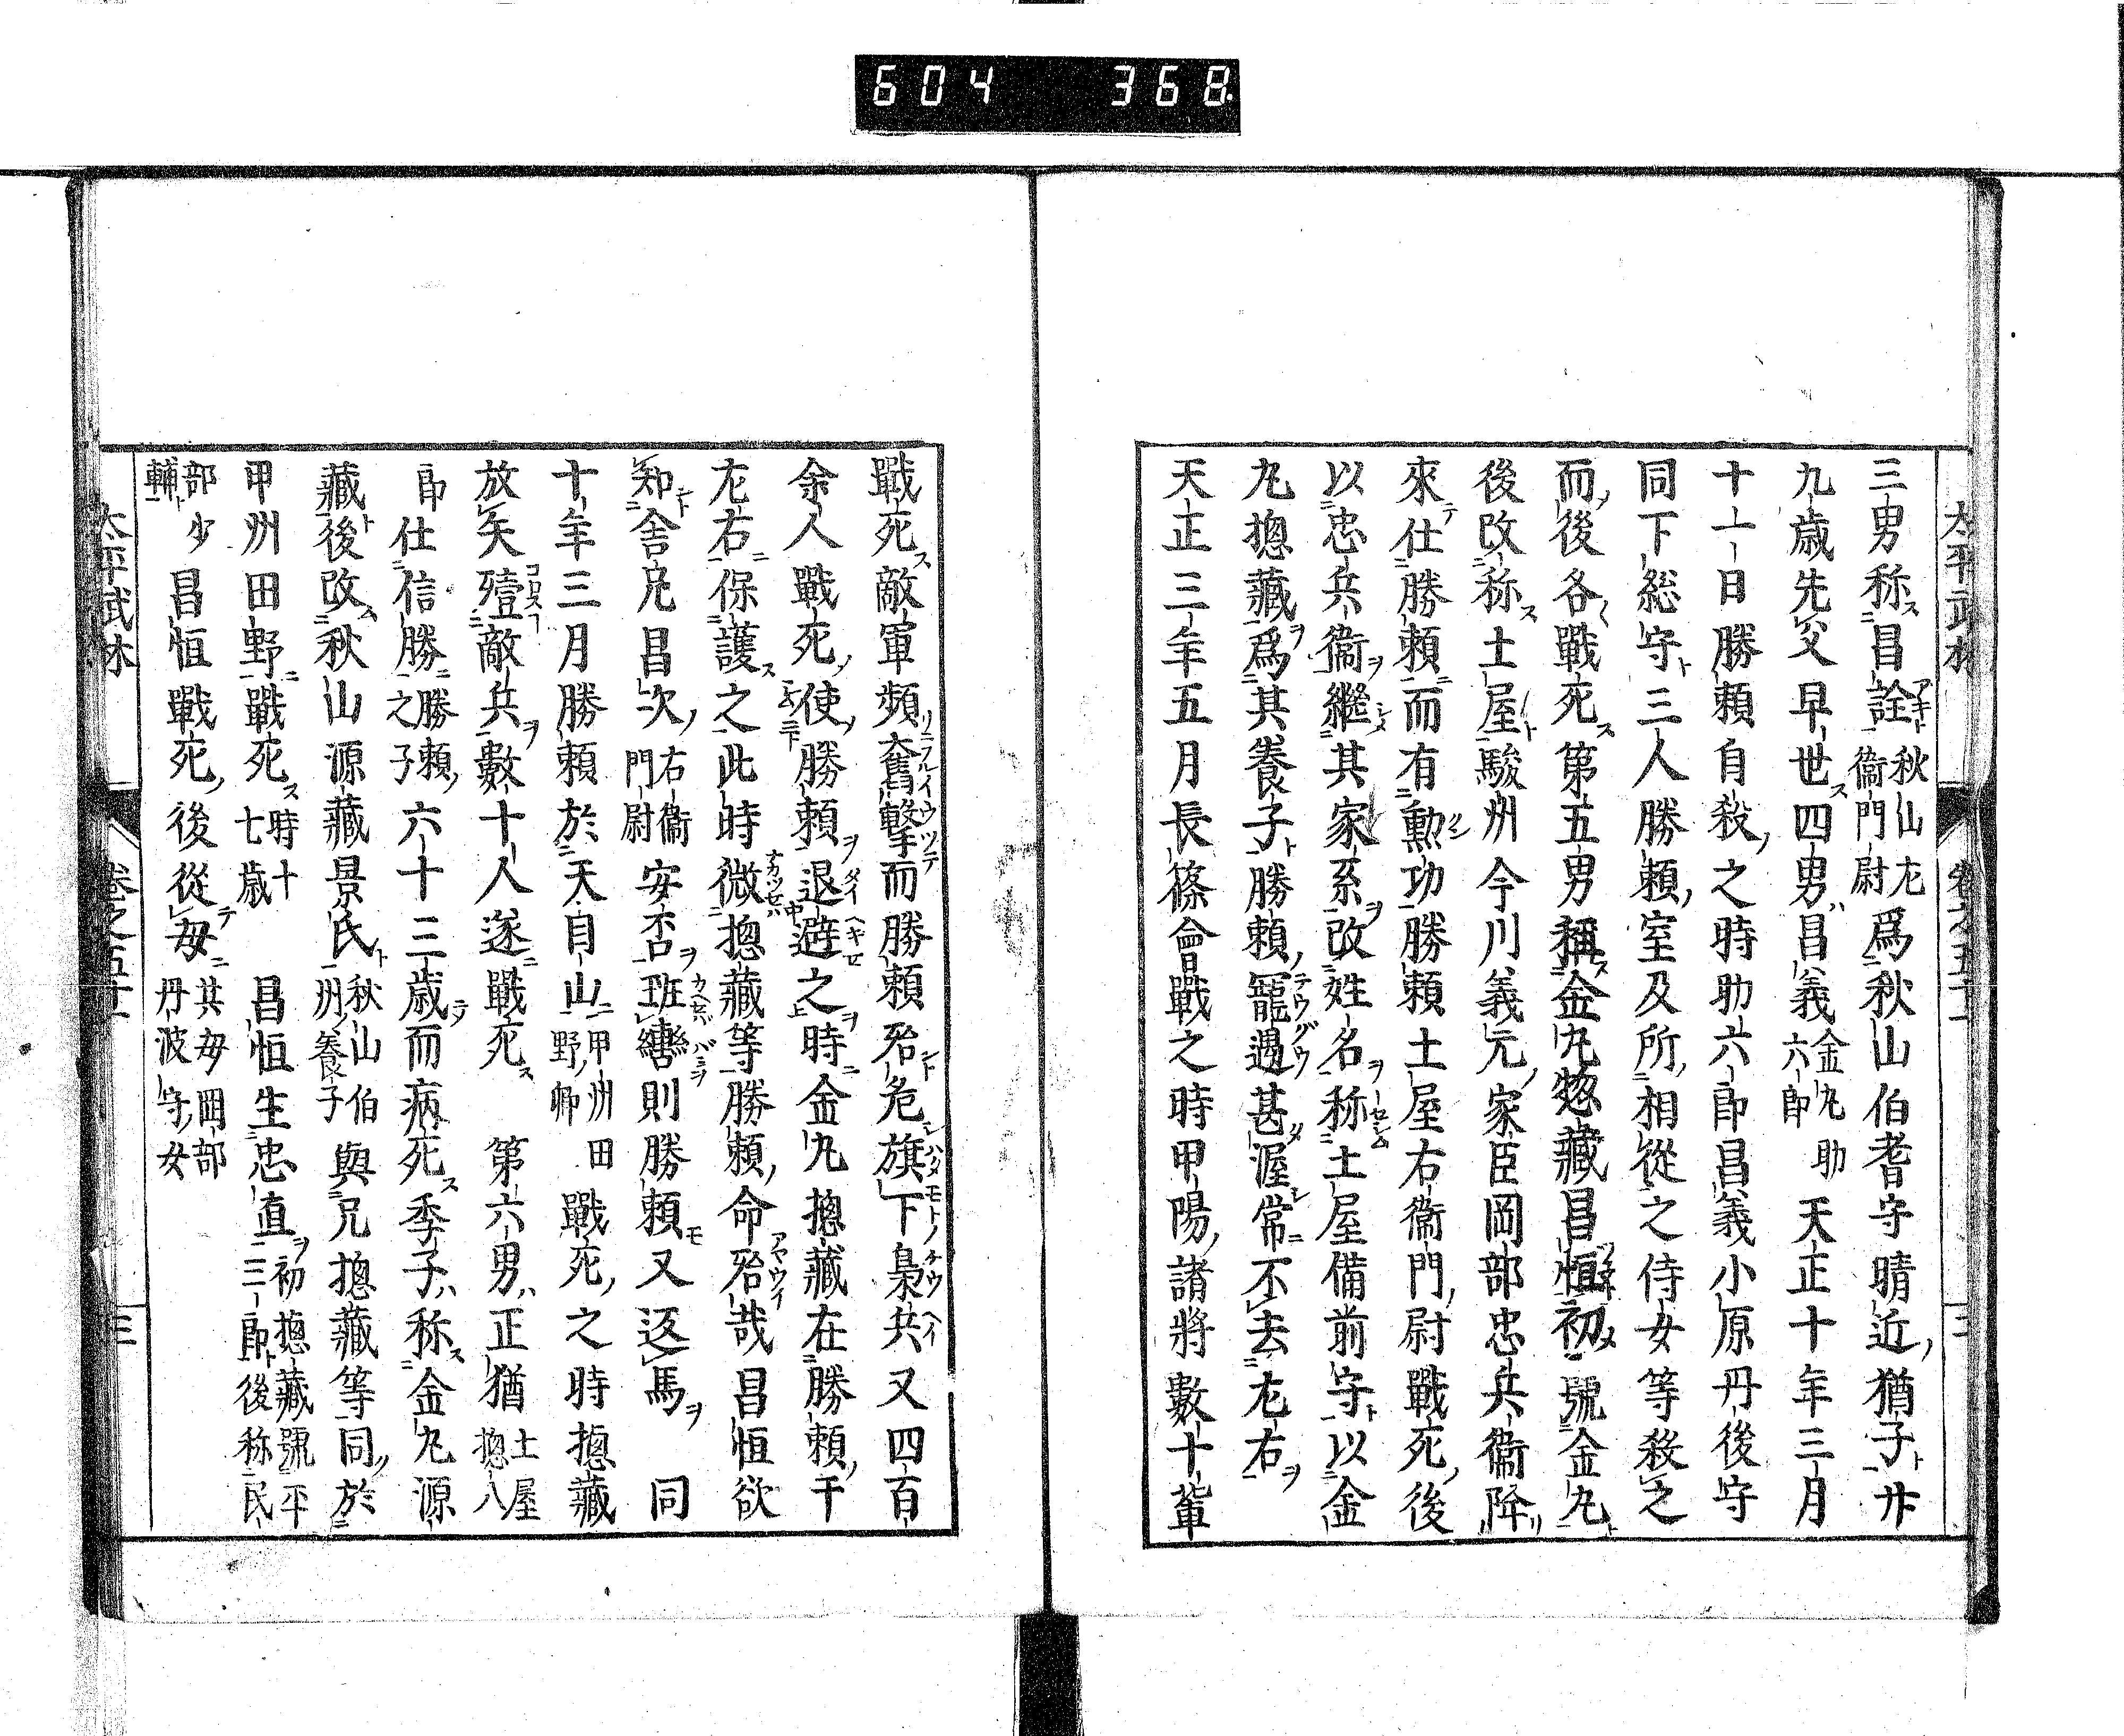 604 368
太平武林
卷之五十一
三男称昌詮 秋山左衞門尉 爲秋山伯耆守晴近猶子廾
九歲先父早世四男昌義 金丸助六郎 天正十年三月
十一日勝頼自殺之時助六郎昌義小原丹後守
同下総守三人勝頼室及所相從之侍女等殺之
而後各戰死第五男稱金丸惣藏昌恒初號金丸
後改称土屋駿州今川義元家臣岡部忠兵衞降
來仕勝頼而有勳功勝頼土屋右衞門尉戰死後
以忠兵衞繼其家系改姓名称土屋備前守以金
丸摠藏爲其養子勝頼寵遇甚渥常不去左右
天正三年五月長篠會戰之時甲陽諸將數十輩
戰死敵軍頻奮擊而勝頼殆危旗下梟兵又四百
余人戰死使勝頼退避之時金丸摠藏在勝頼干
左右保護之此時微摠藏等勝頼命殆哉昌恒欲
知舎兄昌次 右衞門尉 安否班轡則勝頼又返馬 同
十年三月勝頼於天自山 甲州田野郷 戰死之時摠藏
放矢殪敵兵數十人遂戰死 第六男正猶 土屋摠八
郎仕信勝 勝頼之子 六十三歲而病死季子称金丸源
藏後改秋山源藏景氏 秋山伯州養子 與兄摠藏等同於
甲州田野戰死 時十七歲 昌恒生忠直 初摠藏號平三郎後称民
部少輔 昌恒戰死後從母 其母岡部丹波守女
太平武林
卷之五十一
三